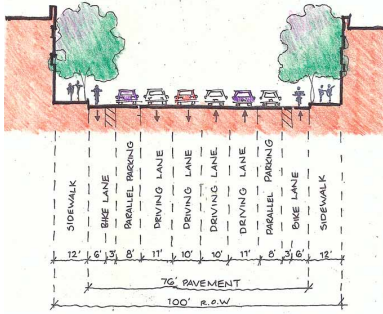 SIDEWALK
BIKE LANE
PARALLEL PARKING
DRIVING LANE
DRIVING LANE
DRIVING LANE
DRIVING LANE
PARALLEL PARKING
BIKE LANE
SIDEWALK
12' 6' 3' 8' 11' 10' 10' 11' 8' 3' 6' 12'
76' PAVEMENT
100' R.O.W